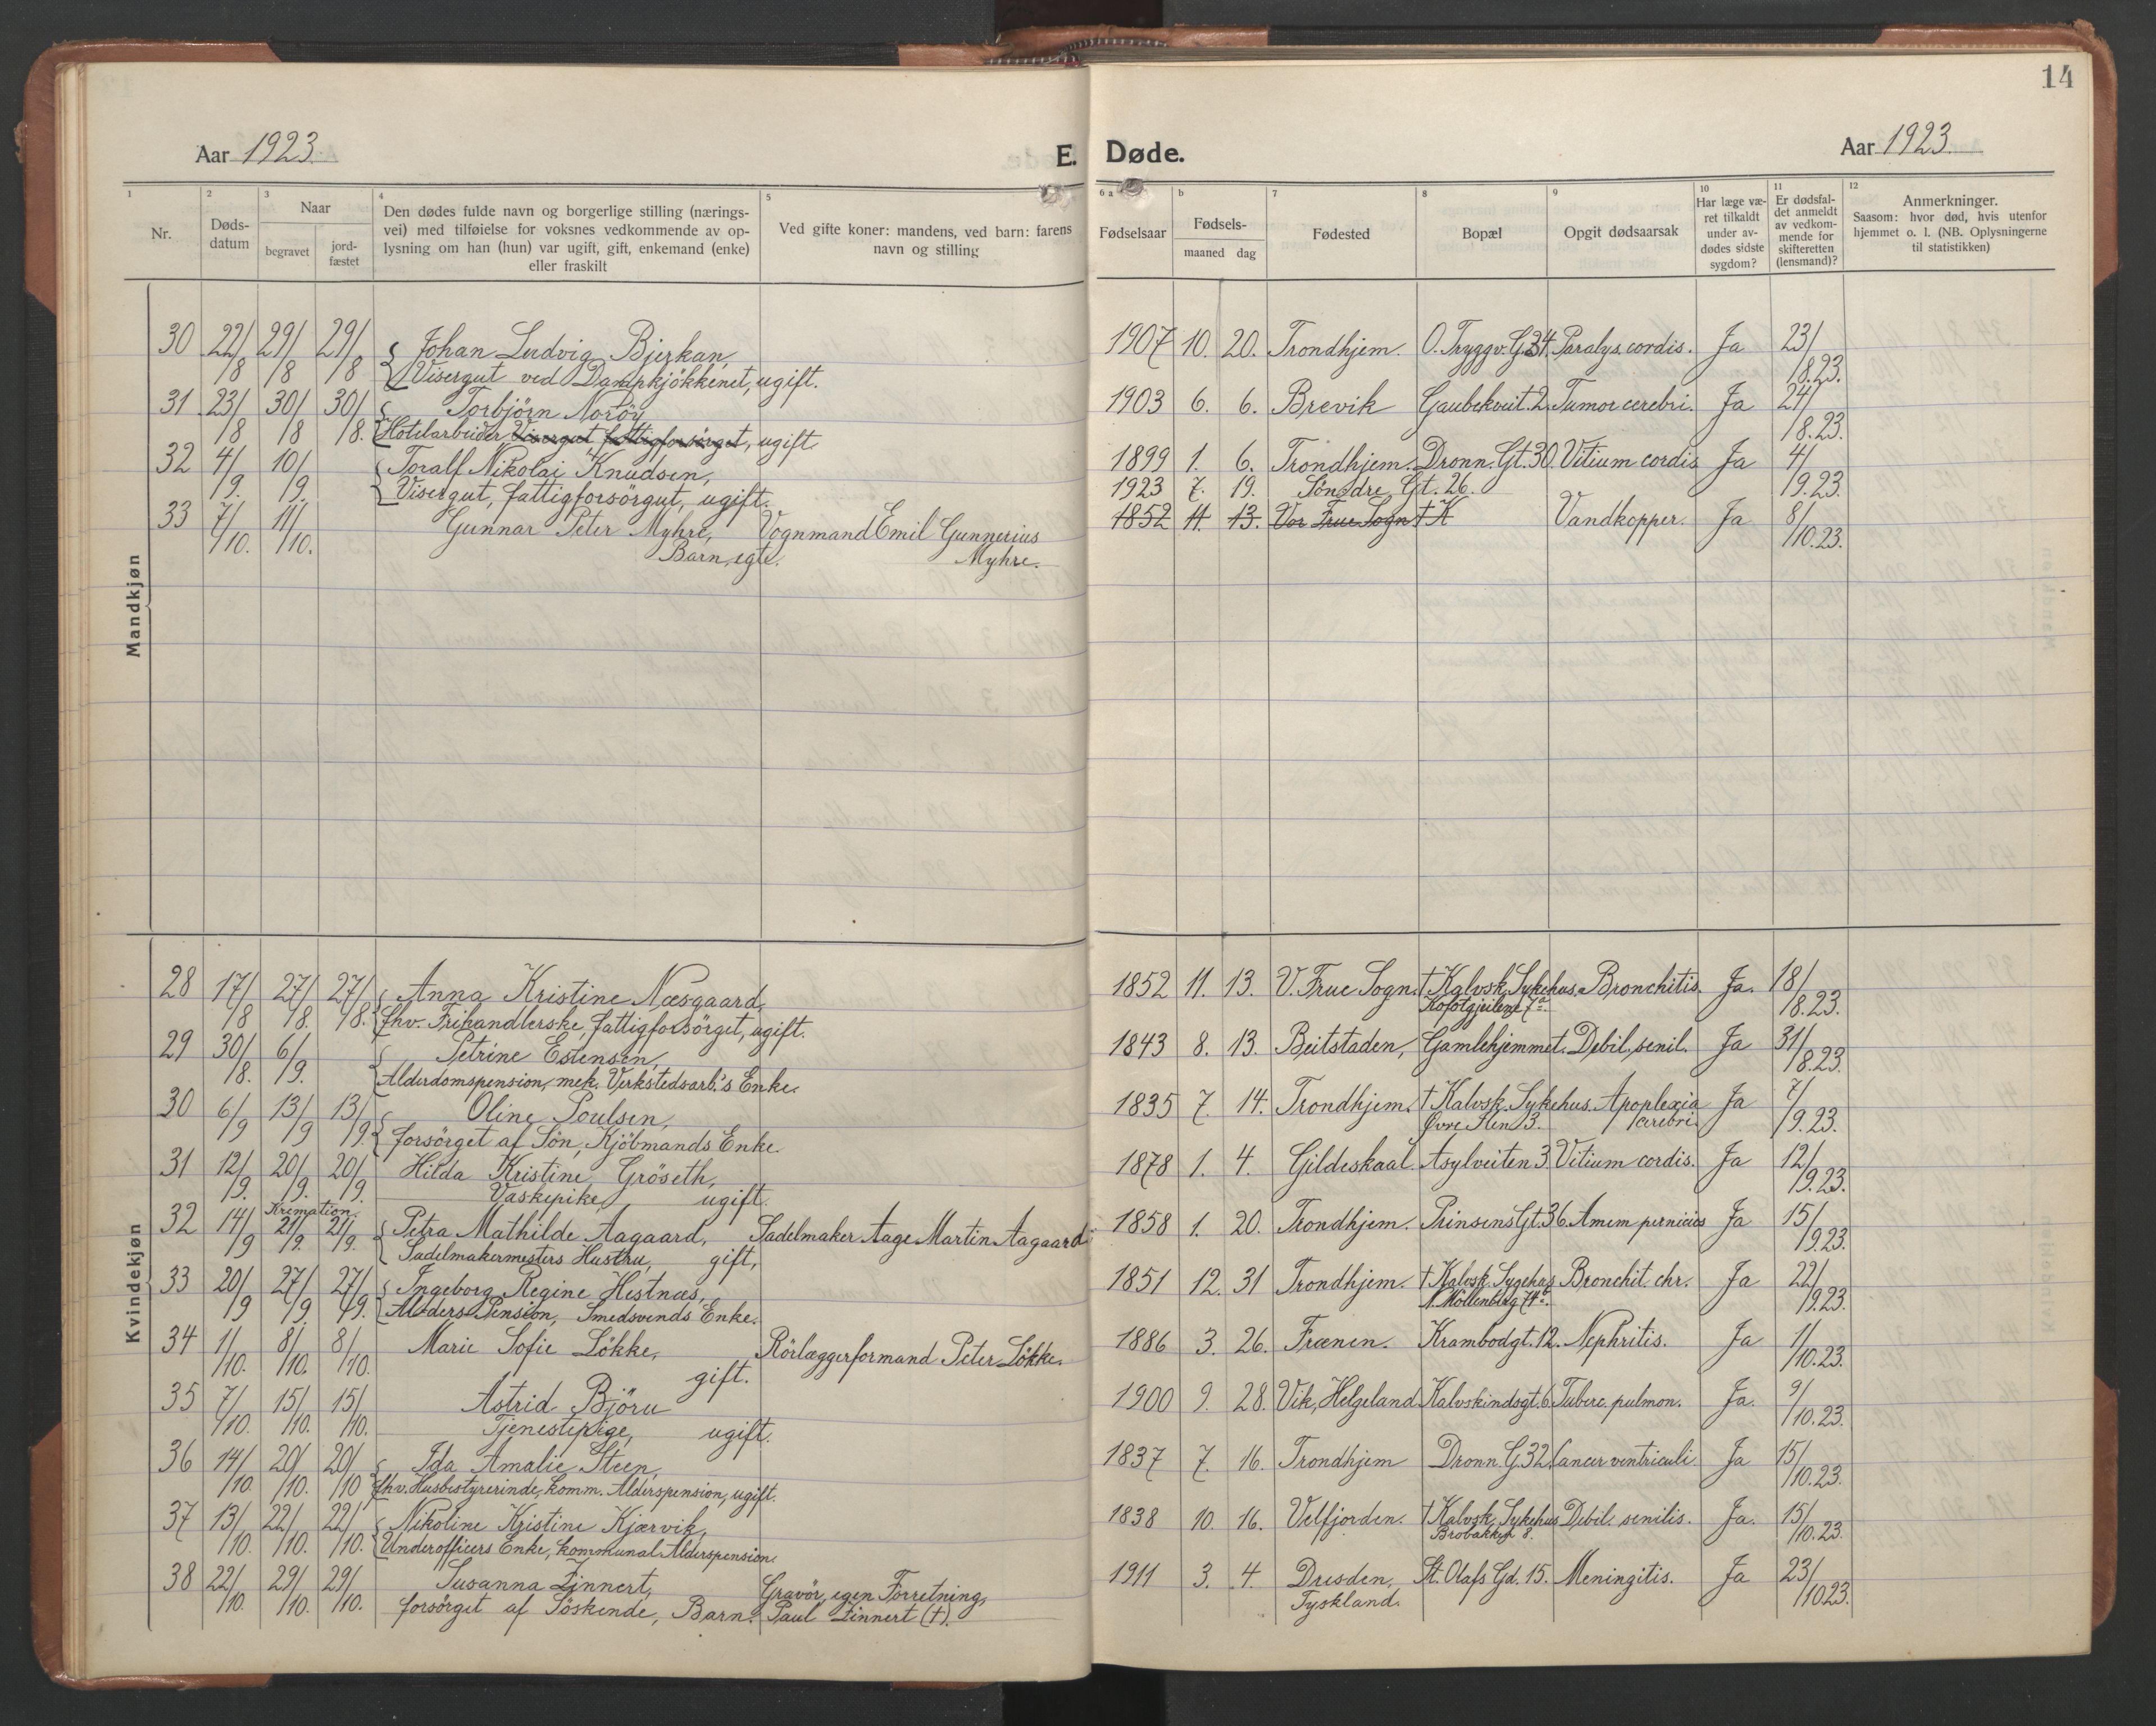 14
Aar 1923. E. Døde. Aar 1923.
1 2 3 4 5 6 a b 7 8 9 10 11 12
Nr.
Døds-
datum
Naar
begravet
jord-
fæstet
Den dødes fulde navn og borgerlige stilling (nærings-
vei) med tilføielse for voksnes vedkommende av op-
lysning om han (hun) var ugift, gift, enkemand (enke)
eller fraskilt
Ved gifte koner: mandens, ved barn: farens
navn og stilling
Fødselsaar
Fødsels-
maaned dag
Fødested
Bopæl
Opgit dødsaarsak
Har læge væ-
ret tilkaldt
under av-
dødes sidste
sygdom?
Er dødsfal-
det anmeldt
av vedkom-
mende for
skifteretten
(lensmand)?
Anmerkninger.
Saasom: hvor død, hvis utenfor
hjemmet o. l. (NB. Oplysningerne
til statistikken)
Mandkjøn
30 22/8 29/8 29/8 Johan Ludvig Bjerkan, 1907 10. 20. Trondhjem. O. Tryggv. G. 34. Paralys. cordis. Ja 23/8.23.
Visergut ved Dampkjökkenet, ugift.
31 23/8 30/8 30/8. Torbjörn Noröy 1903 6. 6. Brevik Gaubekveit. 2. Tumor cerebri. Ja 24/8.23.
Hotelarbeider Visergut fattigforsörget, ugift.
32 4/9. 10/9. Toralf Nikolai Knudsen, 1899 1. 6. Trondhjem. Dronn. Gt. 30. Vitium cordis Ja 4/9.23.
Visergut, fattigforsörgut, ugift.
1923 7. 19. Söndre Gt. 26.
33 7/10. 11/10. Gunnar Peter Myhre, Vognmand Emil Gunnerius 1852 11. 13. Vor Frue Sogn † K Vandkopper. Ja 8/10.23.
Barn, egte. Myhre.
Kvindekjøn
28 17/8 27/8. 27/8. Anna Kristine Næsgaard, 1852 11. 13. V. Frue Sogn. † Kalvsk. Sykehus. Bronchitis. Ja. 18/8.23.
fhv. Frihandlerske, fattigforsörget, ugift. 
29 30/8. 6/9. Petrine Estensen, 1843 8. 13. Beitstaden, Gamlehjemmet. Debil. senil. Ja 31/8.23.
Alderdomspension, mek. Verkstedsarb.'s Enke.
30 6/9 13/9 13/9. Oline Poulsen, 1835 7. 14. Trondhjem. † Kalvsk. Sykehus. Apoplexia Ja 7/9.23.
forsörget af Sön, Kjöbmands Enke. Øvre Ilen 3. cerebri.
31 12/9. 20/9. 20/9. Hilda Kristine Gröseth, 1878 1. 4. Gildeskaal. Asylveiten 3. Vitium cordis. Ja 12/9.23.
Vaskepike, ugift.
Kremation.
32 14/9 21/9. 21/9. Petra Mathilde Aagaard, Sadelmaker Aage Martin Aagaard 1858 1. 20. Trondhjem. Prinsens Gt. 36. Ja 15/9.23.
Sadelmakermesters Hustru, gift,
33 20/9 27/9. 27/9. Ingeborg Regine Hestnæs, 1851 12. 31 Trondhjem. † Kalvsk. Sygehus Bronchit. chr. Ja 22/9.23.
Alders Pension, Smedsvends Enke. N. Möllenberg 74
34 1/10. 8/10. 8/10. Marie Sofie Lökke, Rörlæggerformand Peter Lökke. 1886 3. 26. Frænen. Krambodgt. 12. Nephritis. Ja 1/10.23.
gift.
35 7/10. 15/10. 15/10. Astrid Björu 1900 9. 28. Vik, Helgeland Kalvskindsgt. 6. Tuberc. pulmon. Ja. 9/10.23.
Tjenestepige, ugift.
36 14/10. 20/10. 20/10 Ida Amalie Steen, 1837 7. 16. Trondhjem Dronn. G. 32 Cancer ventriculi Ja 15/10.23.
fhv. Husbestyrerinde, komm. Alderspension, ugift.
37 13/10. 22/10. 22/10. Nikoline Kristine Kjærvik, 1838 10. 16. Velfjorden. † Kalvsk. Sykehus Debil. senilis. Ja. 15/10.23.
Underofficers Enke, kommunal Alderspension. Brobakken 8.
38 22/10. 29/10. 29/10. Susanna Zinnert, Gravör, egen Forretning, 1911 3. 4. Dresden, St. Olafs Gd. 15. Meningitis. Ja 23/10 23.
forsörget af Söskende, Barn. Paul Zinnert (†). Tyskland.